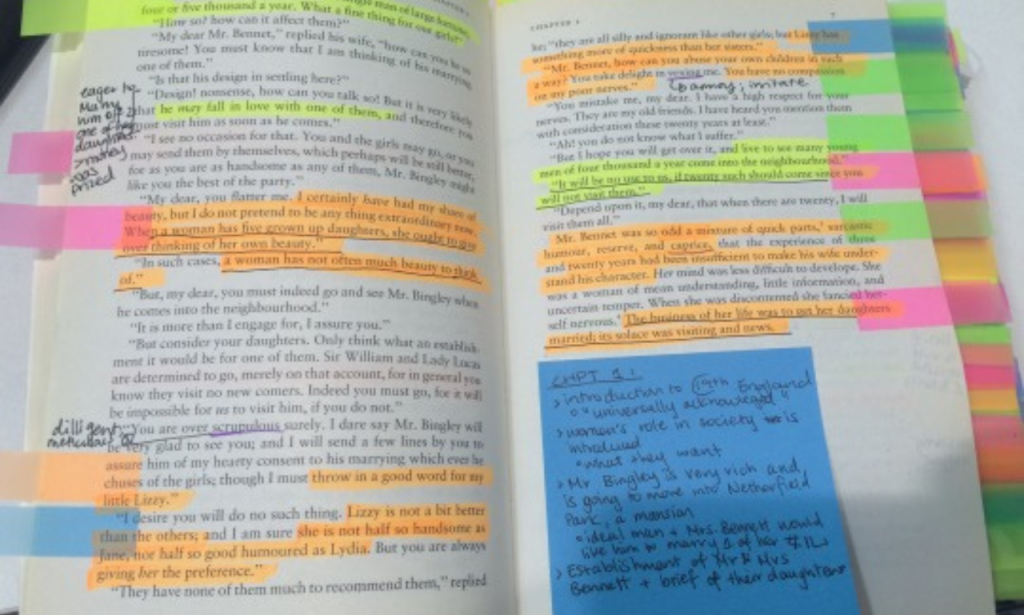 four or five thousand a year. What a fine thing for our girls!"
"How so? how can it affect them?"
"My dear Mr. Bennet," replied his wife, "how can you be so
tiresome! You must know that I am thinking of his marrying
one of them."
"Is that his design in settling here?"
"Design! nonsense, how can you talk so! But it is very likely
that he may fall in love with one of them, and therefore you
must visit him as soon as he comes."
"I see no occasion for that. You and the girls may go, or you
may send them by themselves, which perhaps will be still better,
for as you are as handsome as any of them, Mr. Bingley might
like you the best of the party."
"My dear, you flatter me. I certainly have had my share of
beauty, but I do not pretend to be any thing extraordinary now.
When a woman has five grown up daughters, she ought to give
over thinking of her own beauty."
"In such cases, a woman has not often much beauty to think
of."
"But, my dear, you must indeed go and see Mr. Bingley when
he comes into the neighbourhood."
"It is more than I engage for, I assure you."
"But consider your daughters. Only think what an establish-
ment it would be for one of them. Sir William and Lady Lucas
are determined to go, merely on that account, for in general you
know they visit no new comers. Indeed you must go, for it will
be impossible for us to visit him, if you do not."
"You are over scrupulous surely. I dare say Mr. Bingley will
be very glad to see you; and I will send a few lines by you to
assure him of my hearty consent to his marrying which ever he
chuses of the girls; though I must throw in a good word for my
little Lizzy."
"I desire you will do no such thing. Lizzy is not a bit better
than the others; and I am sure she is not half so handsome as
Jane, nor half so good humoured as Lydia. But you are always
giving her the preference."
"They have none of them much to recommend them," replied
eager to
marry
him off 2
one of her
daughters
>money
was
prized
dilligent
meticulous
CHAPTER 7
he; "they are all silly and ignorant like other girls; but Lizzy has
something more of quickness than her sisters."
"Mr. Bennet, how can you abuse your own children in such
a way? You take delight in vexing me. You have no compassion
on my poor nerves."
annoy; irritate
"You mistake me, my dear. I have a high respect for your
nerves. They are my old friends. I have heard you mention them
with consideration these twenty years at least."
"Ah! you do not know what I suffer."
"But I hope you will get over it, and live to see many young
men of four thousand a year come into the neighbourhood."
"It will be no use to us, if twenty such should come since you
will not visit them."
"Depend upon it, my dear, that when there are twenty, I will
visit them all."
Mr. Bennet was so odd a mixture of quick parts, sarcastic
humour, reserve, and caprice, that the experience of three
and twenty years had been insufficient to make his wife under-
stand his character. Her mind was less difficult to develope. She
was a woman of mean understanding, little information, and
uncertain temper. When she was discontented she fancied her-
self nervous. The business of her life was to get her daughters
married; its solace was visiting and news.
CHPT 1:
> introduction to 19th England
"universally acknowledged"
> women's role in society is
introduced
what they want
> Mr Bingley is very rich and
is going to move into Netherfield
Park, a mansion
ideal man + Mrs. Bennett would
like him to marry 1 of her
> Establishment of Mr & Mrs
Bennett + brief of their daughters